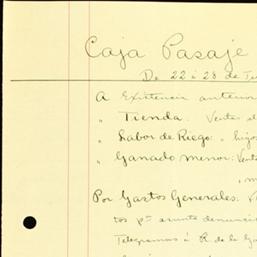 Caja Pasaje
De 22 á 28 de
A Existencia anterior
" Tienda. Ventas
" Labor de Riego: higos
" Ganado menor: Venta
"
Por Gastos Generales:
tos pr. asunto denuncia
Telegramas á R. de la